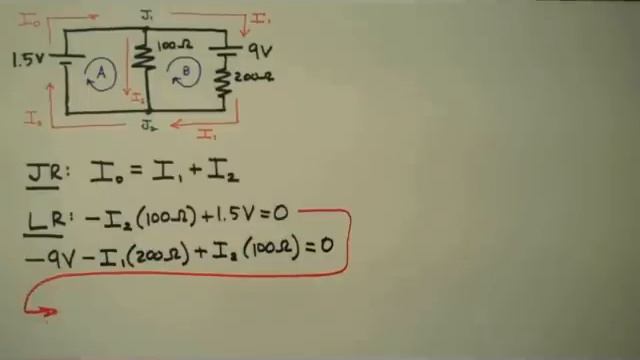 J₁
I₀ I₁
1.5V 100Ω 9V
A B 200Ω
I₂
I₀ J₂ I₁
JR: I₀ = I₁ + I₂
LR: -I₂(100Ω)+1.5V=0
-9V-I₁(200Ω)+I₂(100Ω)=0